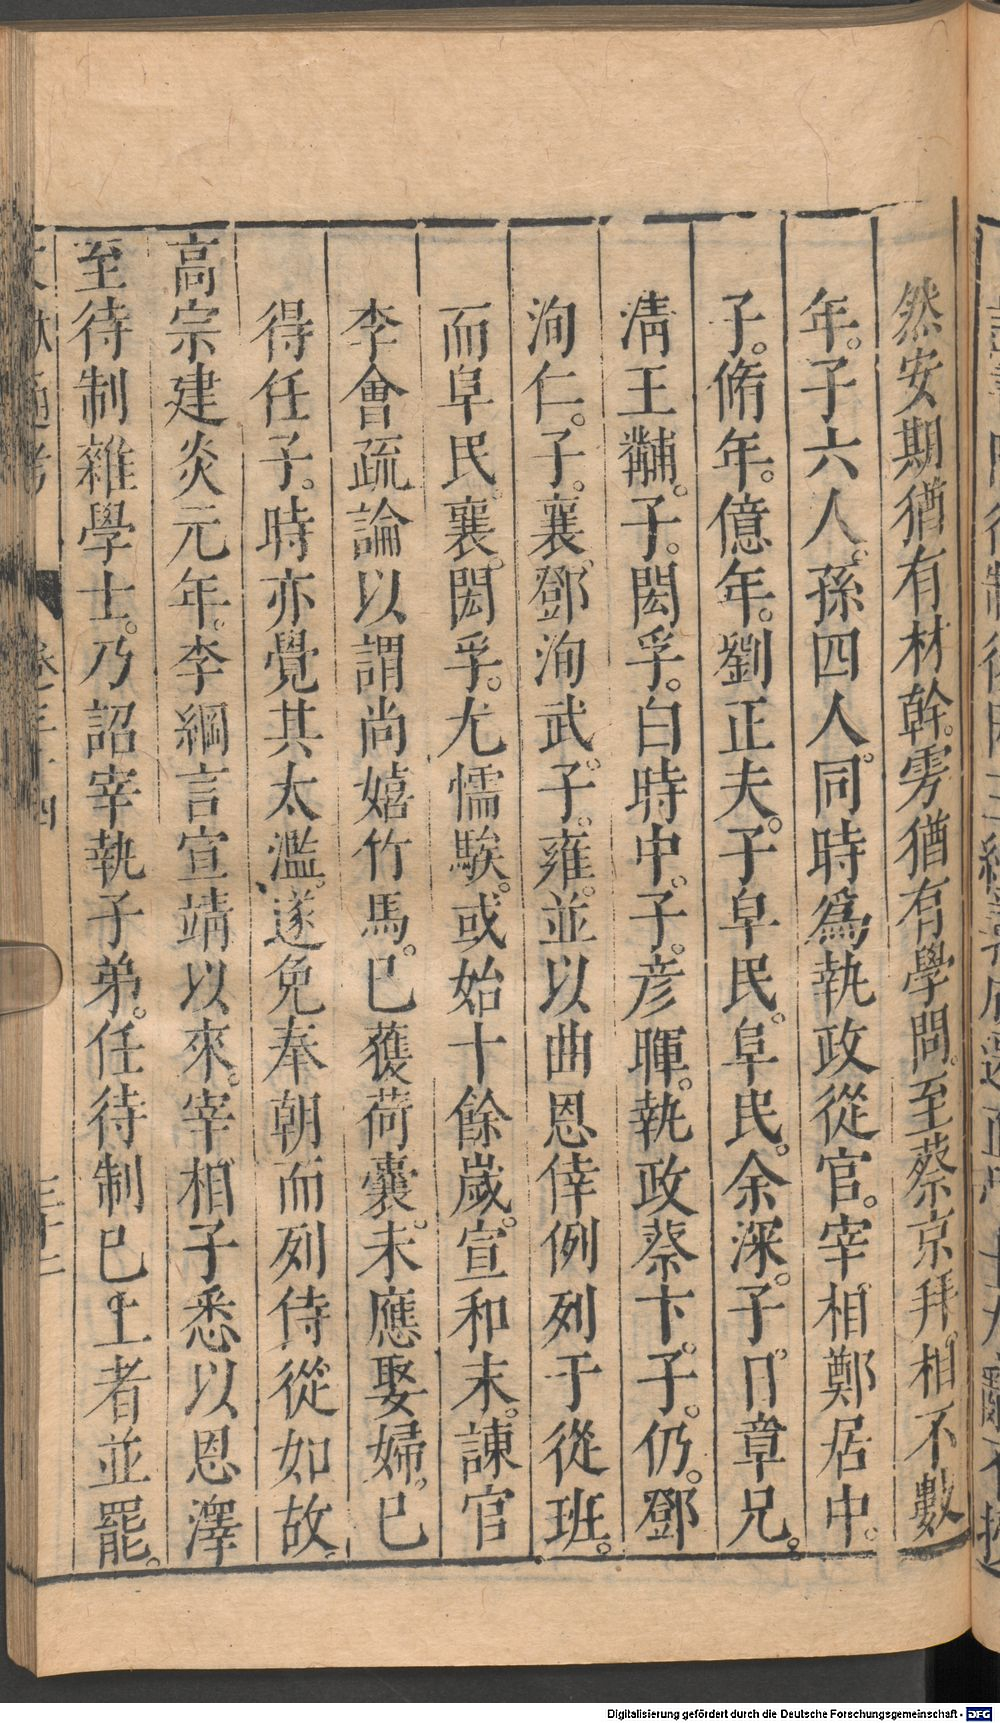 然安期猶有材幹雱猶有學問至蔡京拜相不數
年子六人孫四人同時爲執政從官宰相鄭居中
子脩年億年劉正夫子阜民阜民余深子日章兄
淸王黼子閎孚白時中子彦暉執政蔡卞子仍鄧
洵仁子襄鄧洵武子雍並以曲恩倖例列于從班
而阜民襄閎孚尤懦騃或始十餘歲宣和末諫官
李會疏論以謂尚嬉竹馬已獲荷囊未應娶婦已
得任子時亦覺其太濫遂免奉朝而列侍從如故
高宗建炎元年李綱言宣靖以來宰相子悉以恩澤
至待制雜學士乃詔宰執子弟任待制已上者並罷
Digitalisierung gefördert durch die Deutsche Forschungsgemeinschaft - DFG